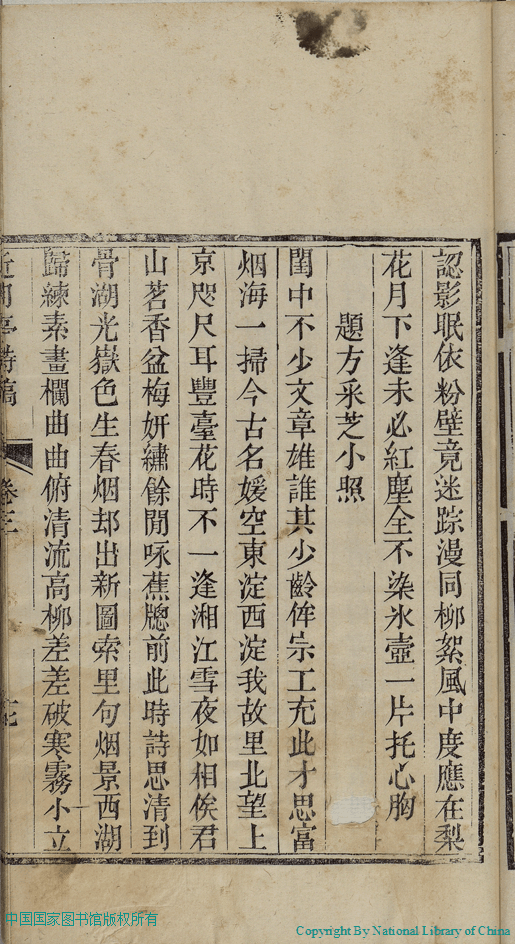 認影眠依粉壁竟迷踪漫同柳絮風中度應在梨
花月下逢未必紅塵全不染氷壺一片托心胸
題方采芝小照
閨中不少文章雄誰其少齡侔宗工充此才思富
烟海一掃今古名媛空東淀西淀我故里北望上
京咫尺耳豐臺花時不一逢湘江雪夜如相俟君
山茗香盆梅妍繡餘閒咏蕉牕前此時詩思清到
骨湖光嶽色生春烟却出新圖索里句烟景西湖
歸練素畫欄曲曲俯清流高柳差差破寒霧小立
近月亭詩稿 卷三
中国国家图书馆版权所有
Copyright By National Library of China